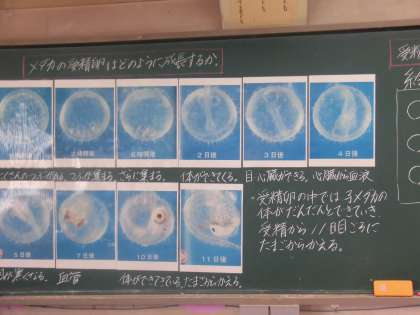 メダカの受精卵はどのように成長するか。
2時間後
6時間後
2日後
3日後
4日後
つぶが集まる。
さらに集まる。
体ができてくる。
目・心臓ができる。
心臓から血液
5日後
7日後
10日後
11日後
血管
体ができてきている。
たまごからかえる。
・受精卵の中では子メダカの
体がだんだんとできていき、
受精から11日目ころに
たまごからかえる。
受精